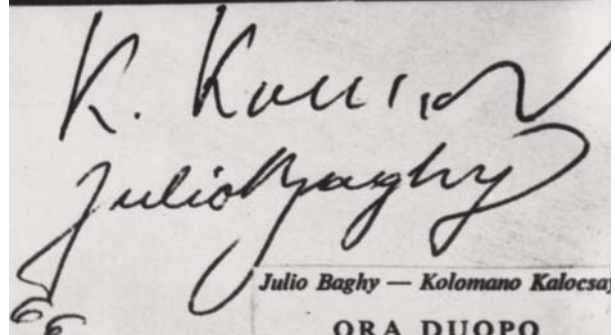 K. Kalocsay
Julio Baghy
Julio Baghy — Kolomano Kalocsay
ORA DUOPO